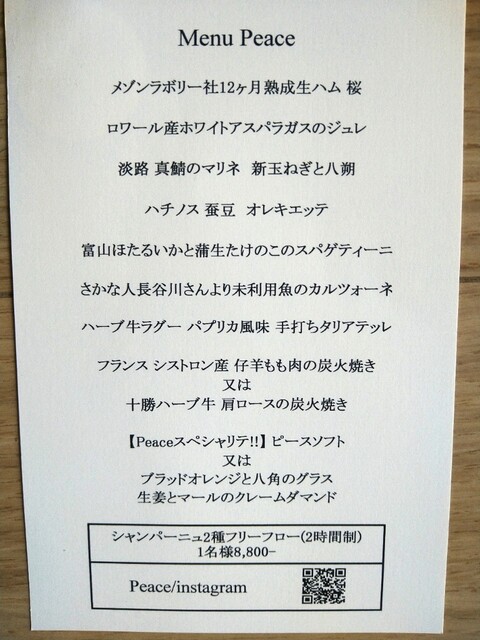 Menu Peace
メゾンラボリー社12ヶ月熟成生ハム 桜
ロワール産ホワイトアスパラガスのジュレ
淡路 真鯖のマリネ 新玉ねぎと八朔
ハチノス 蚕豆 オレキエッテ
富山ほたるいかと蒲生たけのこのスパゲティーニ
さかな人長谷川さんより未利用魚のカルツォーネ
ハーブ牛ラグー パプリカ風味 手打ちタリアテッレ
フランス シストロン産 仔羊もも肉の炭火焼き
又は
十勝ハーブ牛 肩ロースの炭火焼き
【Peaceスペシャリテ!!】 ピースソフト
又は
ブラッドオレンジと八角のグラス
生姜とマールのクレームダマンド
シャンパーニュ2種フリーフロー(2時間制)
1名様8,800-
Peace/instagram